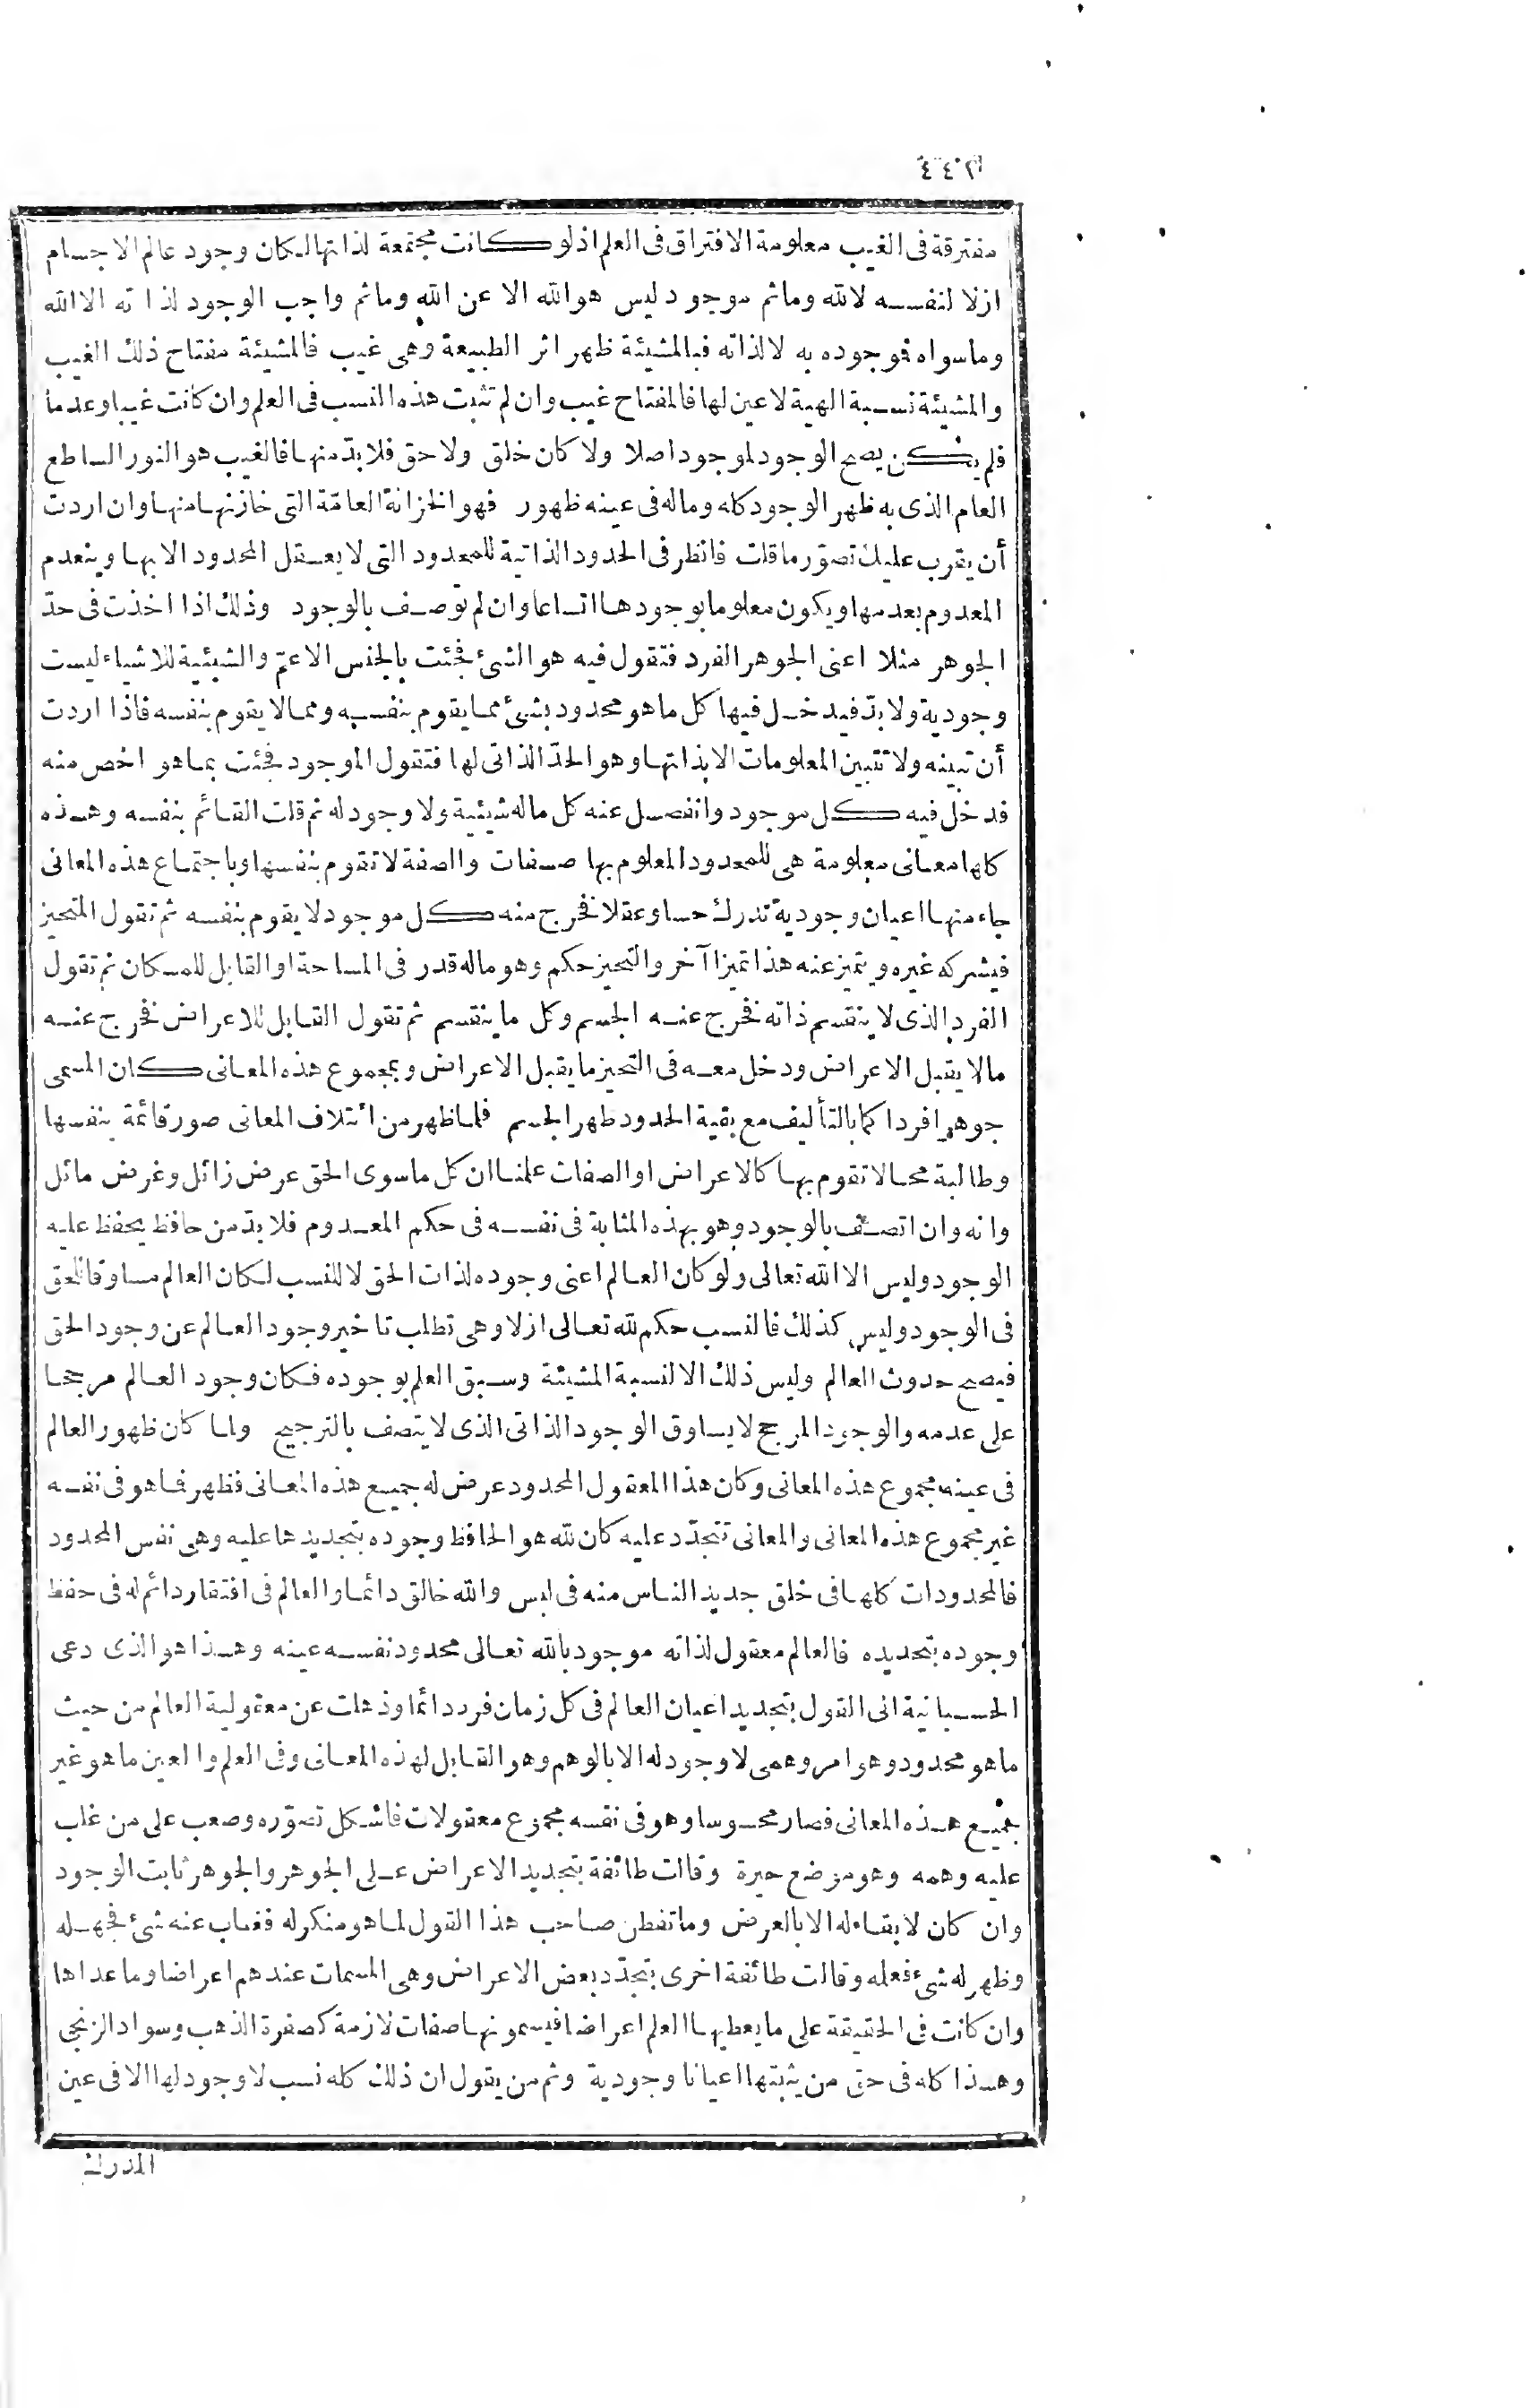 مفترقة فى الغيب معلومة الافتراق فى العلم اذ لو كانت مجتمعة لذاتها لكان وجود عالم الاجسام
ازلا لنفسه لالله وماثم موجود ليس هو الله الا عن الله وماثم واجب الوجود لذاته الا الله
وماسواه فوجوده به لالذاته فبالمشيئة ظهر اثر الطبيعة وهى غيب فالمشيئة مفتاح ذلك الغيب
والمشيئة نسبة الهية لاعين لها فالمفتاح غيب وان لم تثبت هذه النسب فى العلم وان كانت غيبا وعدما
فلم يكن يصح الوجود لموجود اصلا ولا كان خلق ولا حق فلا بدّ منها فالغيب هو النور الساطع
العام الذى به ظهر الوجود كله وماله فى عينه ظهور فهو الخزانة العامّة التى خازنها منها وان اردت
أن يقرب عليك تصوّر ماقلت فانظر فى الحدود الذاتية للمحدود التى لايعقل المحدود الابها وينعدم
المعدوم بعدمها ويكون معلوما بوجودها اتساعا وان لم توصف بالوجود وذلك اذا اخذت فى حدّ
الجوهر مثلا اعنى الجوهر الفرد فتقول فيه هو الشئ فجئت بالجنس الاعمّ والشيئية للاشياء ليست
وجودية ولا بدّ فيدخل فيها كل ماهو محدود بشئ مما يقوم بنفسه ومما لا يقوم بنفسه فاذا اردت
أن تبينه ولا تتبين المعلومات الابذاتها وهو الحدّ الذاتى لها فتقول الموجود فجئت بماهو اخص منه
فدخل فيه كل موجود وانفصل عنه كل ماله شيئية ولا وجود له ثم قلت القائم بنفسه وهذه
كلها معانى معلومة هى للمحدود المعلوم بها صفات والصفة لا تقوم بنفسها وباجتماع هذه المعانى
جاء منها اعيان وجودية تدرك حسا وعقلا فخرج منه كل موجود لا يقوم بنفسه ثم تقول المتحيز
فيشركه غيره ويتميز عنه هذا تميزا آخر والتحيز حكم وهو ماله قدر فى المساحة او القابل للمكان ثم تقول
الفرد الذى لا ينقسم ذاته فخرج عنه الجسم وكل ما ينقسم ثم تقول القابل للاعراض فخرج عنه
مالا يقبل الاعراض ودخل معه فى التحيز ما يقبل الاعراض وبمجموع هذه المعانى كان المسمى
جوهرا فردا كما بالتأليف مع بقية الحدود ظهر الجسم فلما ظهر من ائتلاف المعانى صور قائمة بنفسها
وطالبة محالا تقوم بها كالاعراض او الصفات علمنا ان كل ماسوى الحق عرض زائل وغرض مائل
وانه وان اتصف بالوجود وهو بهذه المثابة فى نفسه فى حكم المعدوم فلا بدّ من حافظ يحفظ عليه
الوجود وليس الا الله تعالى ولو كان العالم اعنى وجوده لذات الحق لا للنسب لكان العالم مساوقا للحق
فى الوجود وليس كذلك فالنسب حكم لله تعالى ازلا وهى تطلب تاخير وجود العالم عن وجود الحق
فيصح حدوث العالم وليس ذلك الا لنسبة المشيئة وسبق العلم بوجوده فكان وجود العالم مرجحا
على عدمه والوجود المرجح لا يساوق الوجود الذاتى الذى لا يتصف بالترجيح ولما كان ظهور العالم
فى عينه مجموع هذه المعانى وكان هذا المعقول المحدود عرض له جميع هذه المعانى فظهر فما هو فى نفسه
غير مجموع هذه المعانى والمعانى تتجدّد عليه كان الله هو الحافظ وجوده بتجديدها عليه وهى نفس المحدود
فالمحدودات كلها فى خلق جديد الناس منه فى لبس والله خالق دائما والعالم فى افتقار دائم له فى حفظ
وجوده بتجديده فالعالم معقول لذاته موجود بالله تعالى محدود نفسه عينه وهذا هو الذى دعى
الحسبانية الى القول بتجديد اعيان العالم فى كل زمان فرد دائما وذهلت عن معقولية العالم من حيث
ما هو محدود وهو امر وهمى لا وجود له الا بالوهم وهو القابل لهذه المعانى وفى العلم والعين ما هو غير
جميع هذه المعانى فصار محسوسا وهو فى نفسه مجموع معقولات فاشكل تصوّره وصعب على من غلب
عليه وهمه وهو موضع حيرة وقالت طائفة بتجديد الاعراض على الجوهر والجوهر ثابت الوجود
وان كان لا بقاء له الا بالعرض وماتفطن صاحب هذا القول لما هو منكر له فغاب عنه شئ فجهله
وظهر له شئ فعلمه وقالت طائفة اخرى بتجدّد بعض الاعراض وهى المسمات عندهم اعراضا وماعداها
وان كانت فى الحقيقة على ما يعطيها العلم اعراضا فيسمونها صفات لازمة كصفرة الذهب وسواد الزنجى
وهذا كله فى حق من يثبتها اعيانا وجودية وثم من يقول ان ذلك كله نسب لا وجود لها الا فى عين
المدرك